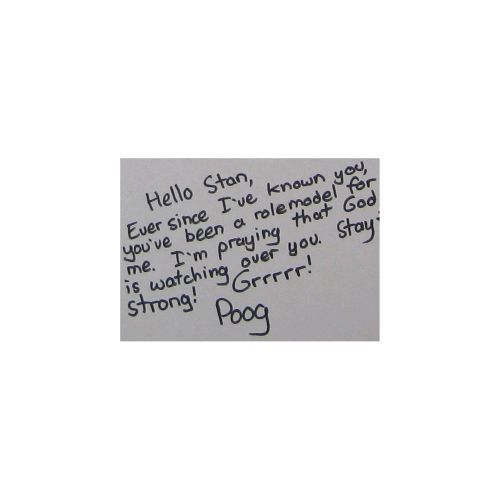 Hello Stan,
Ever since I've known you,
you've been a rolemodel for
me. I'm praying that God
is watching over you. Stay
strong! Grrrrr!
Poog